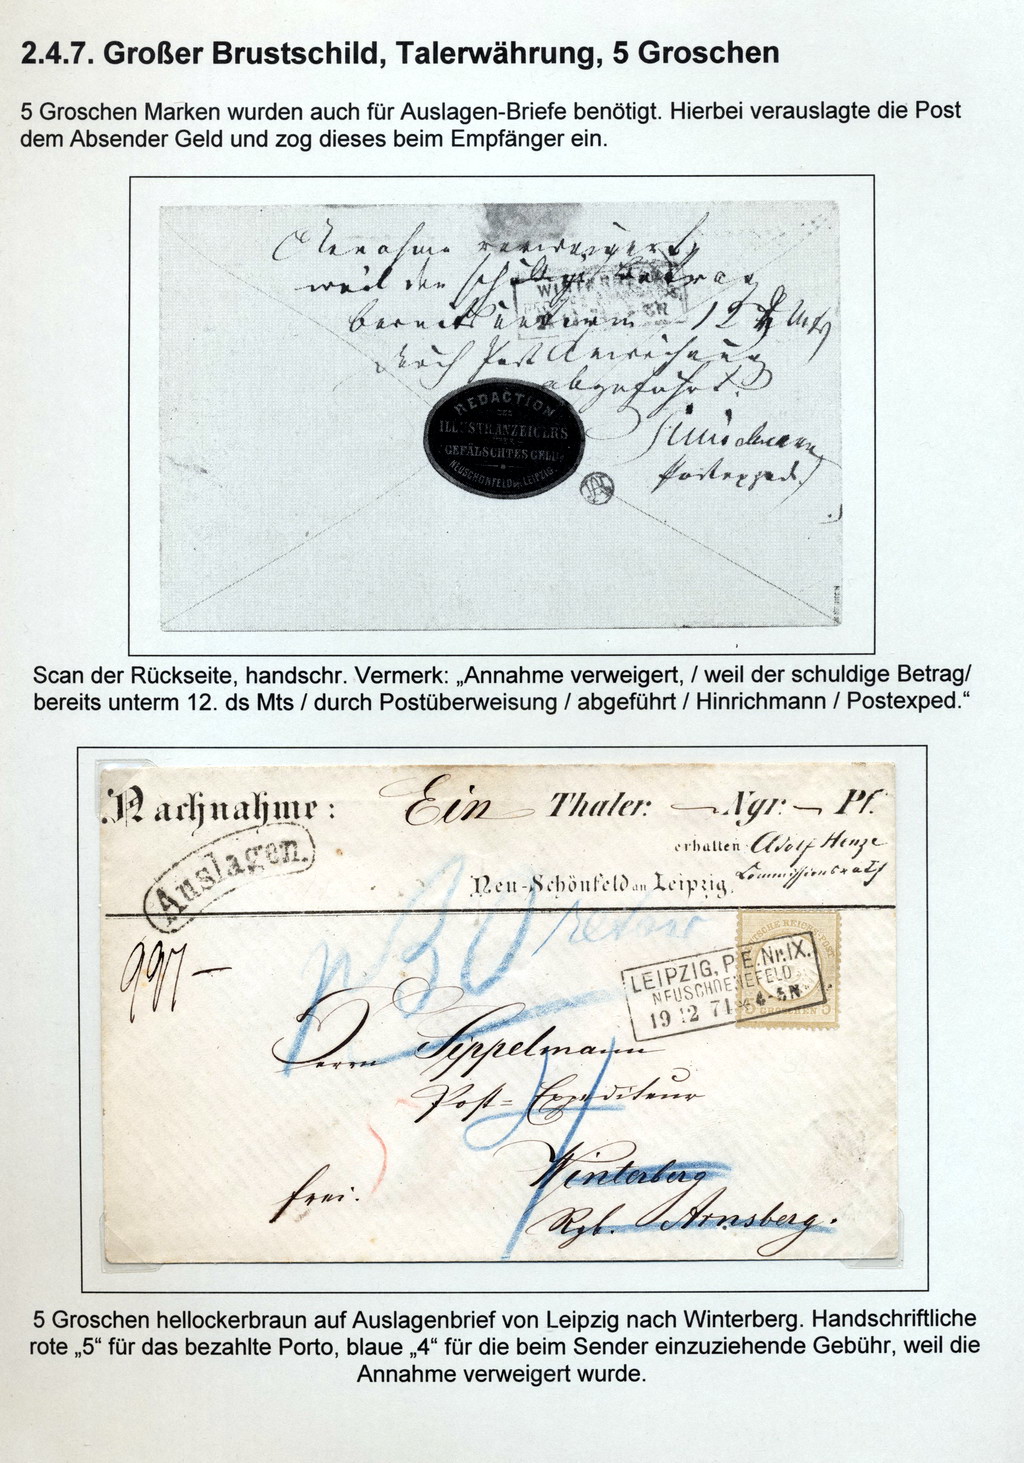 2.4.7. Großer Brustschild, Talerwährung, 5 Groschen
5 Groschen Marken wurden auch für Auslagen-Briefe benötigt. Hierbei verauslagte die Post
dem Absender Geld und zog dieses beim Empfänger ein.
Annahme verweigert,
weil der schuldige Betrag
bereits unterm 12. d. Mts
durch Post
abgeführt.
Postexped.
REDACTION
DES
ILLUSTR. ANZEIGERS
ÜBER
GEFÄLSCHTES GELD
NEUSCHÖNFELD B. LEIPZIG.
Scan der Rückseite, handschr. Vermerk: „Annahme verweigert, / weil der schuldige Betrag/
bereits unterm 12. ds Mts / durch Postüberweisung / abgeführt / Hinrichmann / Postexped.“
Nachnahme: Ein Thaler: — Ngr: — Pf.
erhalten Adolf Henze
Commissionsrath
Neu-Schönfeld an Leipzig.
Auslagen.
retour
997 —
LEIPZIG, P.E. Nr. IX.
NEUSCHOENEFELD
19 12 74 * 4-5N
GROSCHEN
Herrn Sippelmann
Post-Expediteur
Winterberg
frei.
Rgb. Arnsberg.
5 Groschen hellockerbraun auf Auslagenbrief von Leipzig nach Winterberg. Handschriftliche
rote „5“ für das bezahlte Porto, blaue „4“ für die beim Sender einzuziehende Gebühr, weil die
Annahme verweigert wurde.